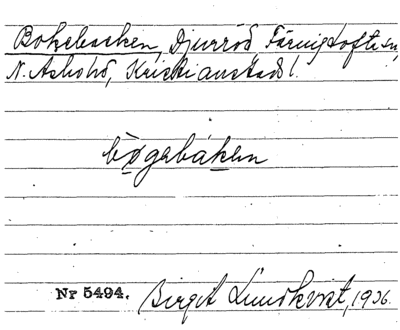 Bokebacken, Djurröd, Färingtofta sn,
N. Åsbo hd, Kristianstads l.
bøgabáken
Nr 5494. Birgit Lundkvist, 1936.